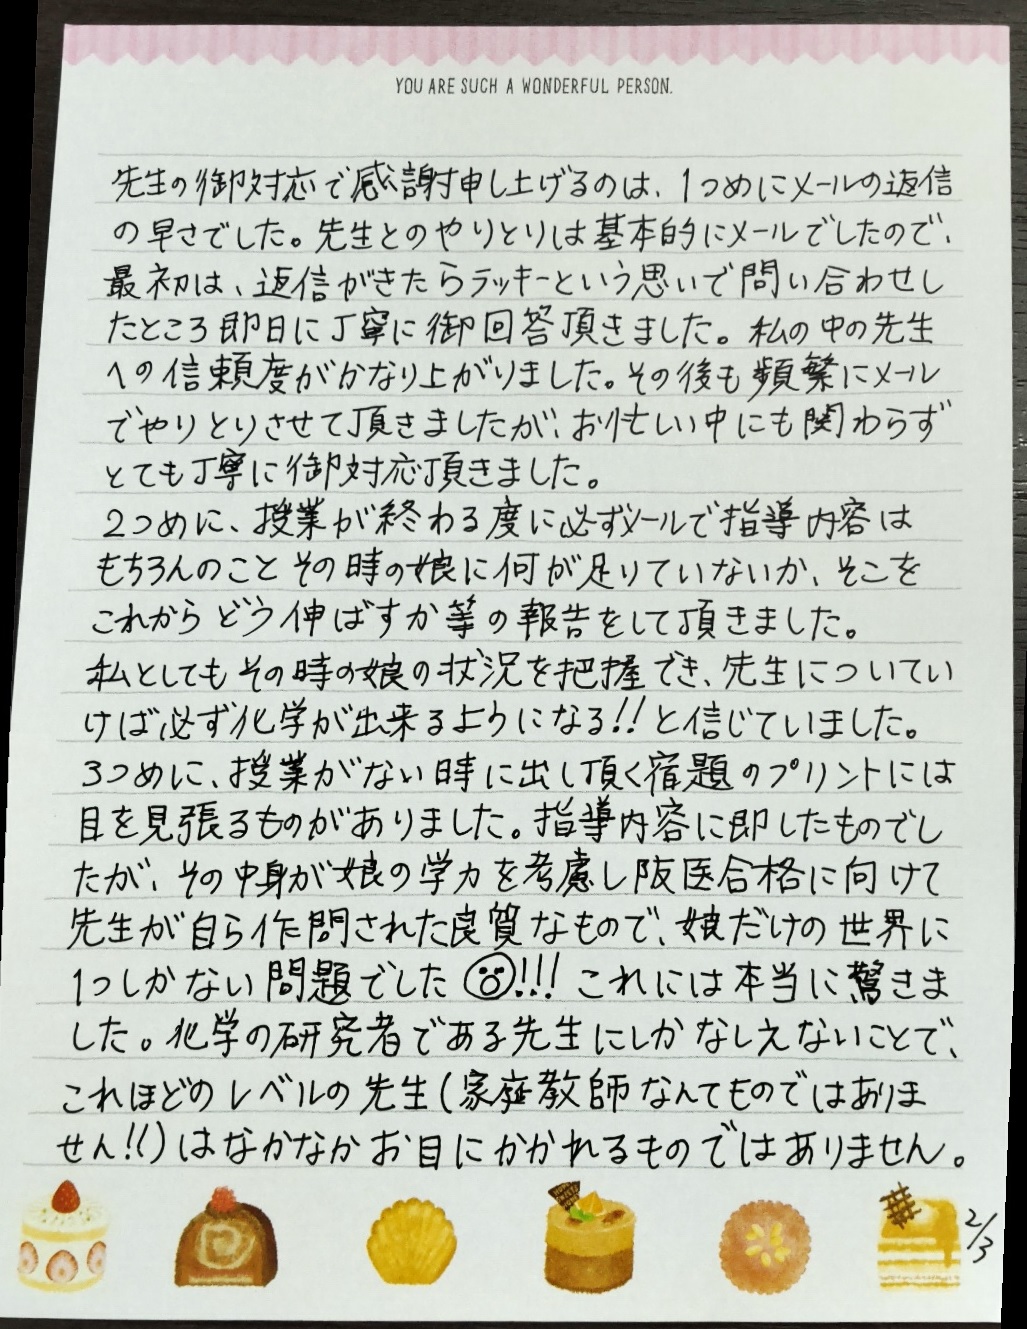 YOU ARE SUCH A WONDERFUL PERSON.
先生の御対応で感謝申し上げるのは、1つめにメールの返信
の早さでした。先生とのやりとりは基本的にメールでしたので、
最初は、返信がきたらラッキーという思いで問い合わせし
たところ即日に丁寧に御回答頂きました。私の中の先生
への信頼度がかなり上がりました。その後も頻繁にメール
でやりとりさせて頂きましたが、お忙しい中にも関わらず
とても丁寧に御対応頂きました。
2つめに、授業が終わる度に必ずメールで指導内容は
もちろんのことその時の娘に何が足りていないか、そこを
これからどう伸ばすか等の報告をして頂きました。
私としてもその時の娘の状況を把握でき、先生についてい
けば必ず化学が出来るようになる!!と信じていました。
3つめに、授業がない時に出し頂く宿題のプリントには
目を見張るものがありました。指導内容に即したものでし
たが、その中身が娘の学力を考慮し阪医合格に向けて
先生が自ら作問された良質なもので、娘だけの世界に
1つしかない問題でした!!! これには本当に驚きま
した。化学の研究者である先生にしかなしえないことで、
これほどのレベルの先生(家庭教師なんてものではありま
せん!!)はなかなかお目にかかれるものではありません。
2/3